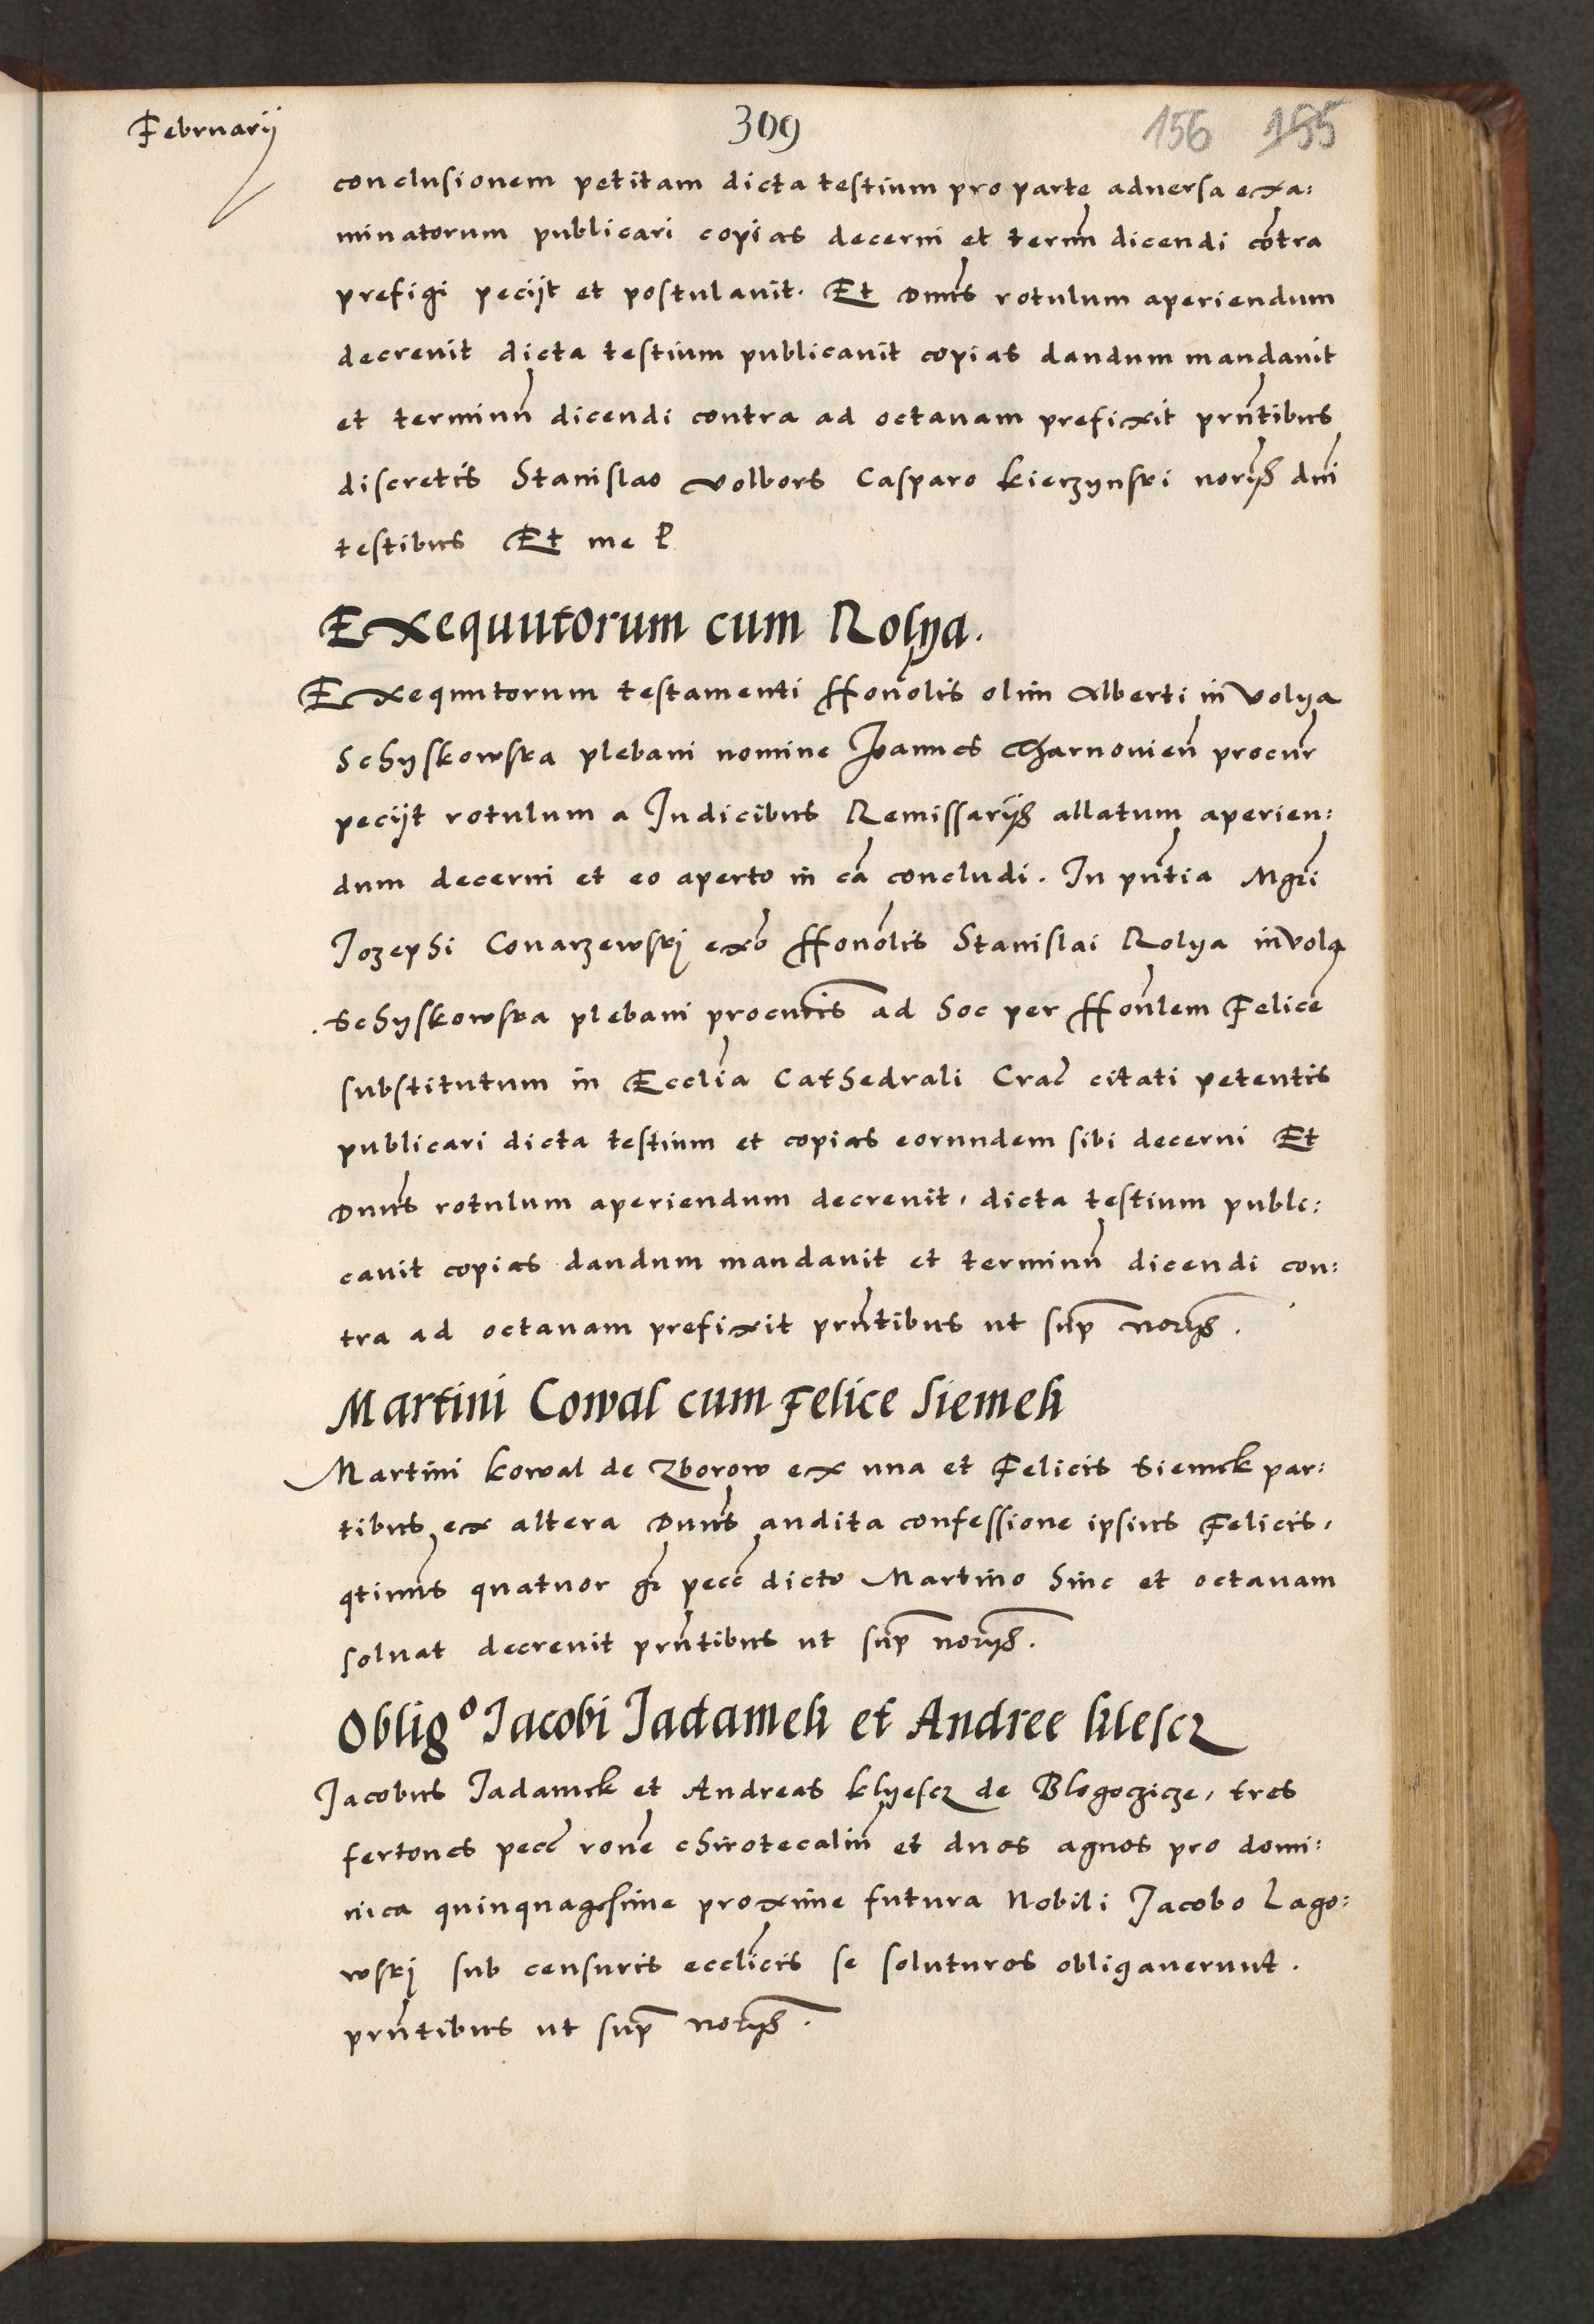 Februarij
309
156 155
conclusionem petitam dicta testium pro parte aduersa exa:
minatorum publicari copias decerni et termī dicendi cōtra
prefigi pecijt et postulauit. Et Dnūs rotulum aperiendum
decreuit dicta testium publicauit copias dandum mandauit
et terminū dicendi contra ad octauam prefixit pn̄tibus
discretis Stanislao volbors Casparo kierzynski norijs dn̄i
testibus Et me P
Exequutorum cum Rolya.
Exequutorum testamenti Honōlis olim Alberti in volya
Schyskowska plebani nomine Joannes Charnouien̄ procur̄
pecijt rotulum a Judicibus Remissarijs allatum aperien:
dum decerni et eo aperto in cā concludi. In pn̄tia Mgrī
Jozephi Conarzewskj exō Honōlis Stanislai Rolya in vola
Schyskowska plebani procur̄is ad hoc per Honōlem Felicē
substitutum in Ecclīa Cathedrali Crac̄ citati petentis
publicari dicta testium et copias eorundem sibi decerni Et
Dnūs rotulum aperiendum decreuit, dicta testium publi:
cauit copias dandum mandauit et terminū dicendi con:
tra ad octauam prefixit pn̄tibus ut sup̄ norijs.
Martini Cowal cum Felice Siemek
Martini kowal de Zborow ex una et Felicis Siemek par:
tibus ex altera Dnūs audita confessione ipsius Felicis,
qtinūs quatuor gr̄ pecc̄ dicto Martino hinc et octauam
soluat decreuit pn̄tibus ut sup̄ norijs.
Oblig° Jacobi Jadamek et Andree klescz
Jacobus Jadamek et Andreas klyescz de Blogoczicze, tres
fertones pecc̄ rōne chirotecaliū et duos agnos pro domi:
nica quinquagesime proxime futura Nobili Jacobo Lago:
wskj sub censuris ecclīcis se soluturos obligauerunt.
pn̄tibus ut sup̄ norijs.